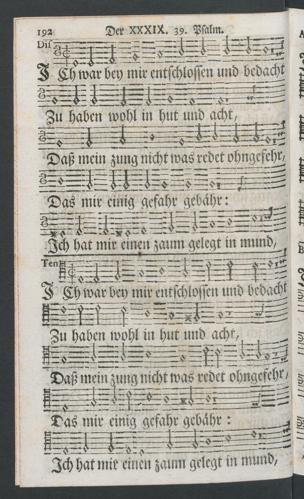 192 Der XXXIX. 39. Psalm.
Dis
I Ch war bey mir entschlossen und bedacht
Zu haben wohl in hut und acht,
Daß mein zung nicht was redet ohngefehr,
Das mir einig gefahr gebähr:
Ich hat mir einen zaum gelegt in mund,
Ten
I Ch war bey mir entschlossen und bedacht
Zu haben wohl in hut und acht,
Daß mein zung nicht was redet ohngefehr,
Das mir einig gefahr gebähr:
Ich hat mir einen zaum gelegt in mund,